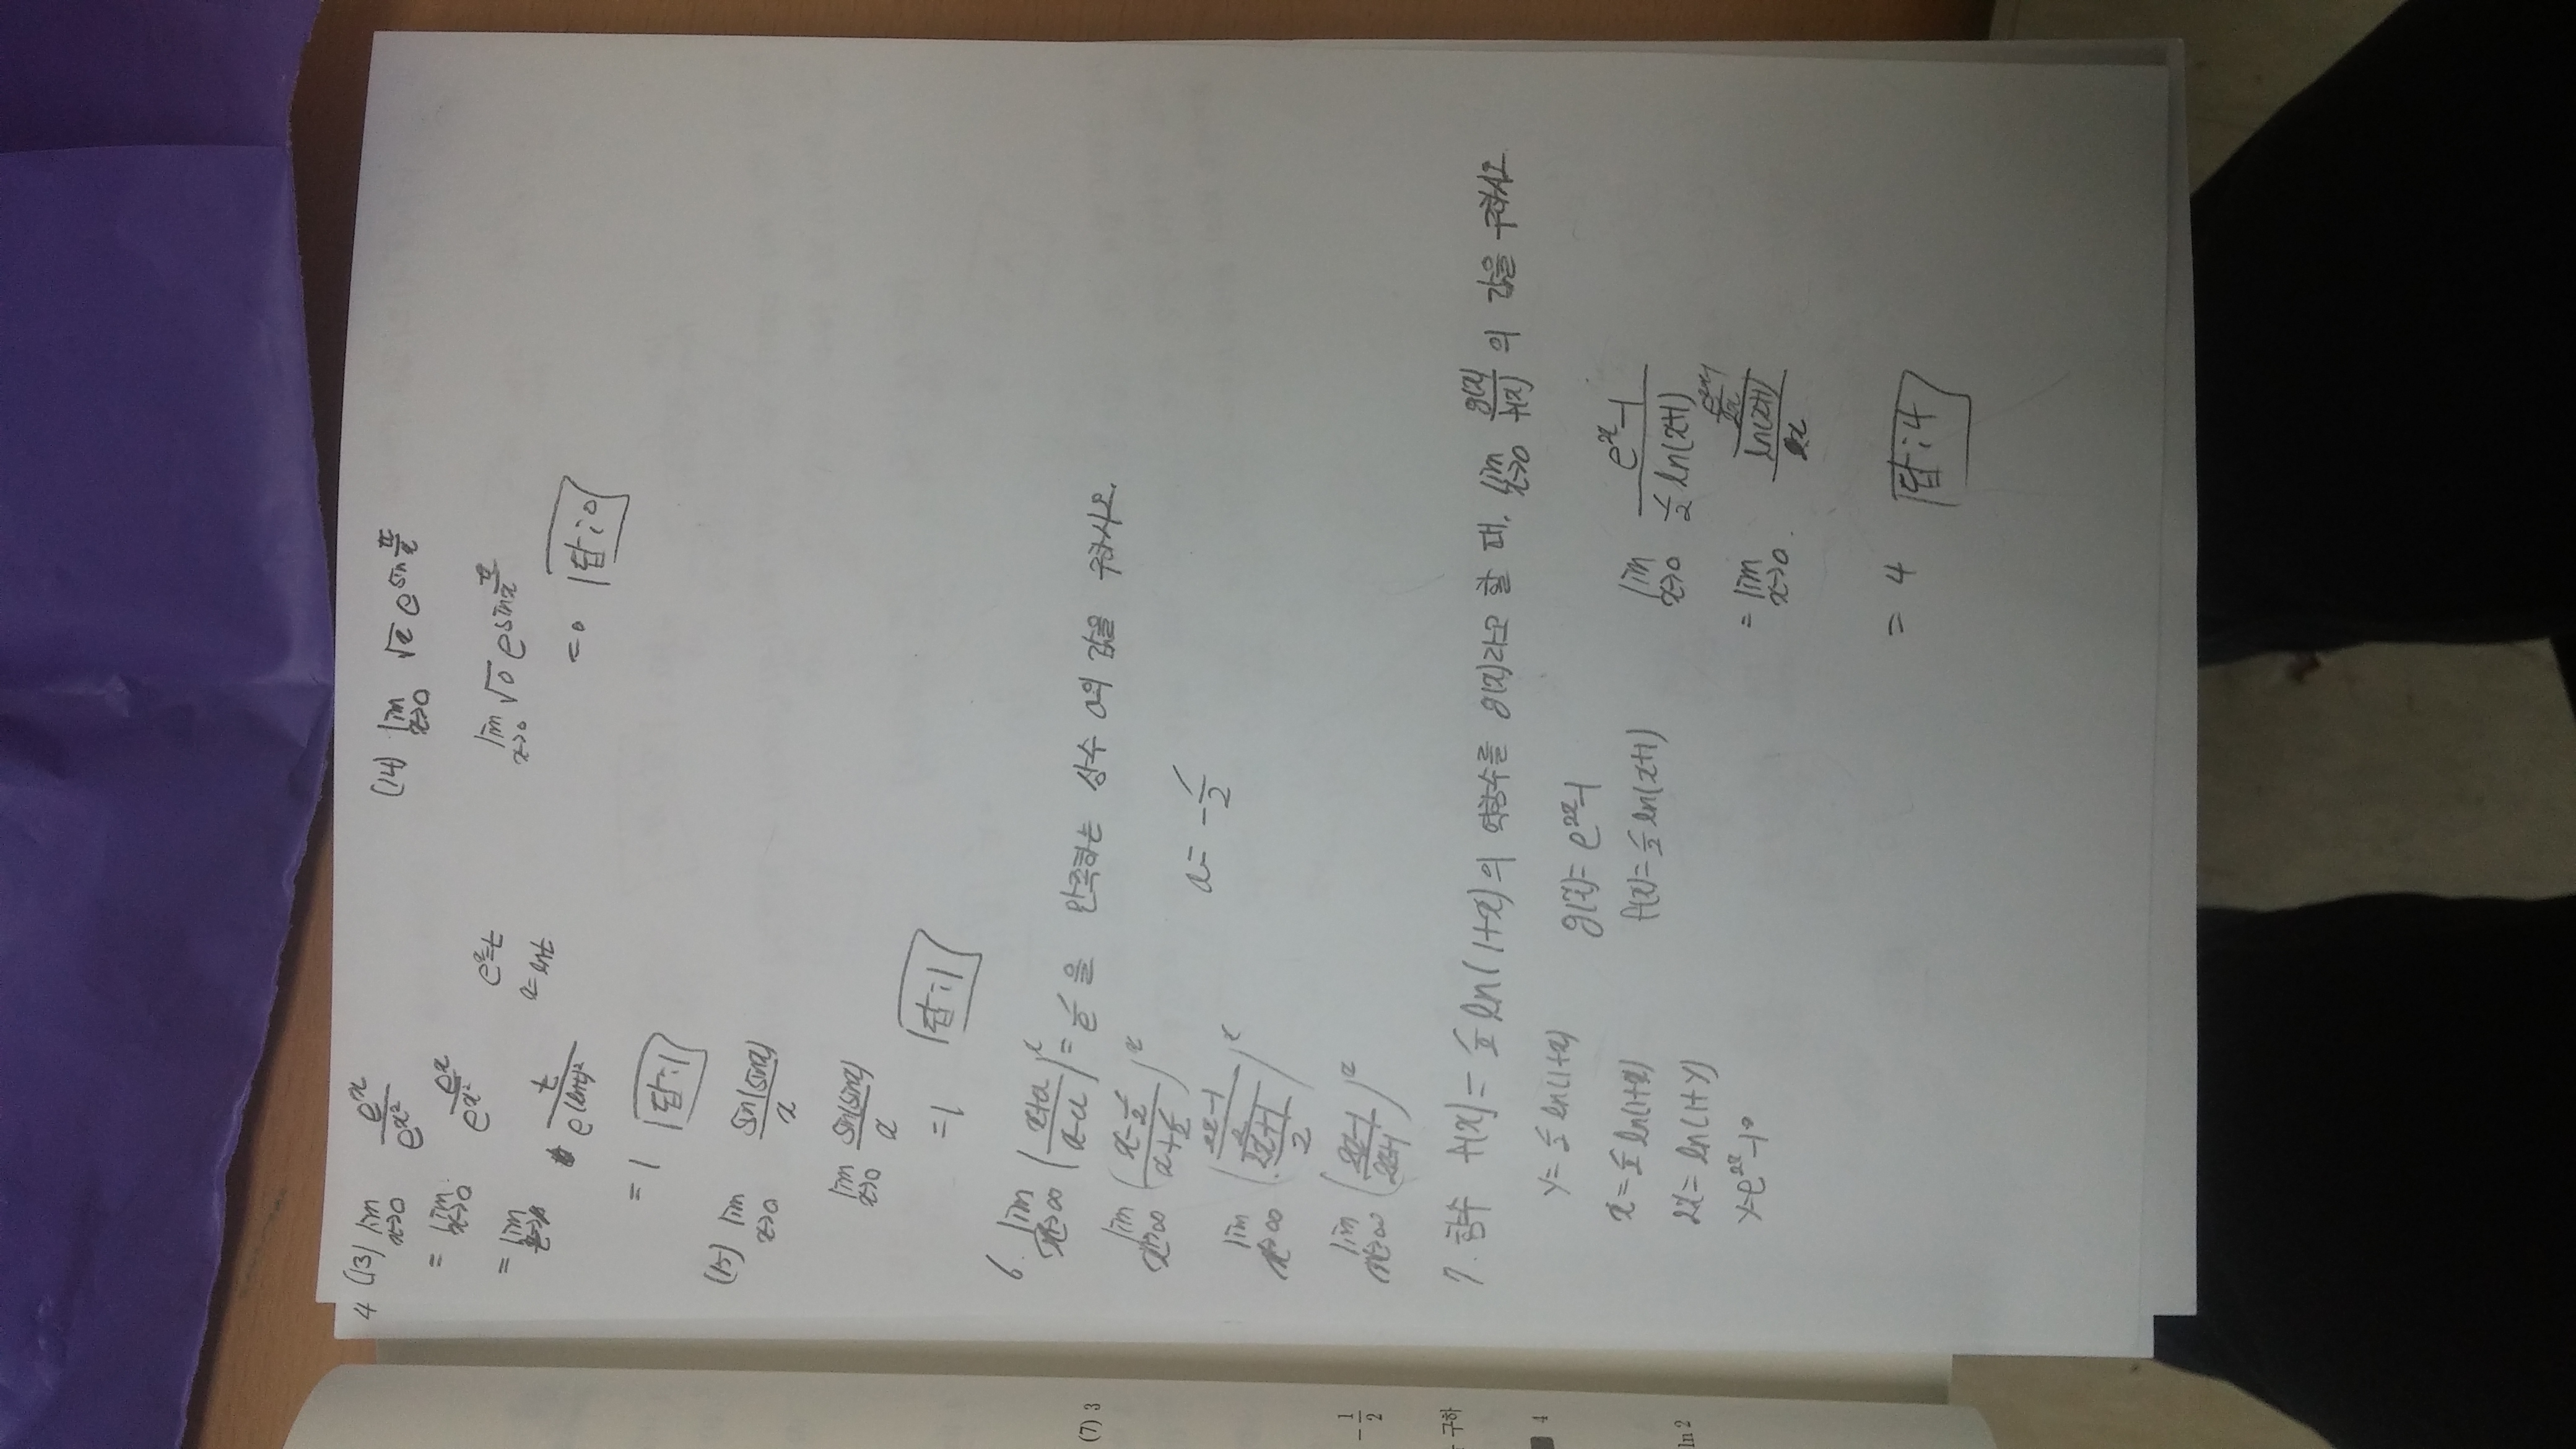 4 (13) lim x→0 e^x / e^{x^2}
= lim x→0 e^x / e^{x^2}
e^x = t
x = ln t
= lim t / e^{(ln t)^2}
= 1 답: 1
(14) lim x→0 √x e^{sin π/x}
lim x→0 √0 e^{sin π/x}
= 0 답: 0
(15) lim x→0 sin(sin x) / x
lim x→0 sin(sin x) / x
= 1 답: 1
6. lim x→∞ ((x+a)/(x-a))^x = 1/e 을 만족하는 상수 a의 값을 구하시오.
lim x→∞ ((x-1/2)/(x+1/2))^x
a = -1/2
lim x→∞ (((2x-1)/2)/((2x+1)/2))^x
lim x→∞ ((2x-1)/(2x+1))^x
7. 함수 f(x) = 1/2 ln(1+x)의 역함수를 g(x)라고 할 때, lim x→0 g(x)/f(x) 의 값을 구하시오
y = 1/2 ln(1+x)
x = 1/2 ln(1+x)
2x = ln(1+y)
y = e^{2x} - 1
g(x) = e^{2x} - 1
f(x) = 1/2 ln(x+1)
lim x→0 (e^{2x} - 1) / (1/2 ln(x+1))
= lim x→0 ((e^{2x} - 1)/2x) / (ln(x+1)/x)
= 4 답: 4
(7) 3
- 1/2
구하
4
ln 2